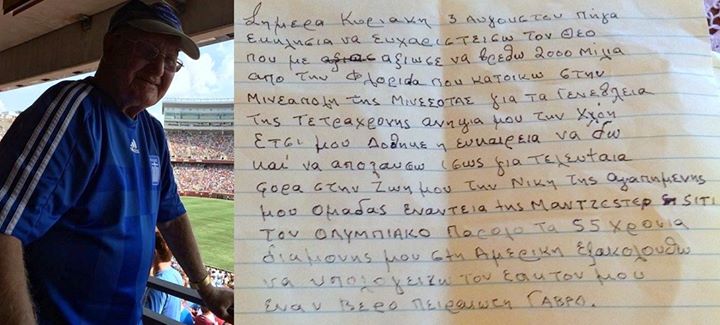 Σημερα Κυριακη 3 Αυγουστου Πηγα
εκκλησια να ευχαριστεισω τον Θεο
που με αξιας αξιωσε να βρεθω 2000 μιλα
απο την Φλοριδα που κατοικω στην
Μινεαπολη της Μινεσοτας για τα Γενεθλεια
της τετραχρονης ανηψια μου την Χλόη
Ετσι μου Δοθηκε η ευκαιρεια να δω
και να απολαυσω ισως για τελευταια
φορα στην Ζωη μου την Νικη της αγαπημενης
μου ομαδας εναντεια της Μαντζεστερ SITI
τον ΟΛΥΜΠΙΑΚΟ Παρολο τα 55 χρονια
διαμονης μου στη Αμερικη εξακολουθω
να υπολογειζω τον εαυτον μου
εναν Βερο Πειραιωτη Γαβρο.
adidas